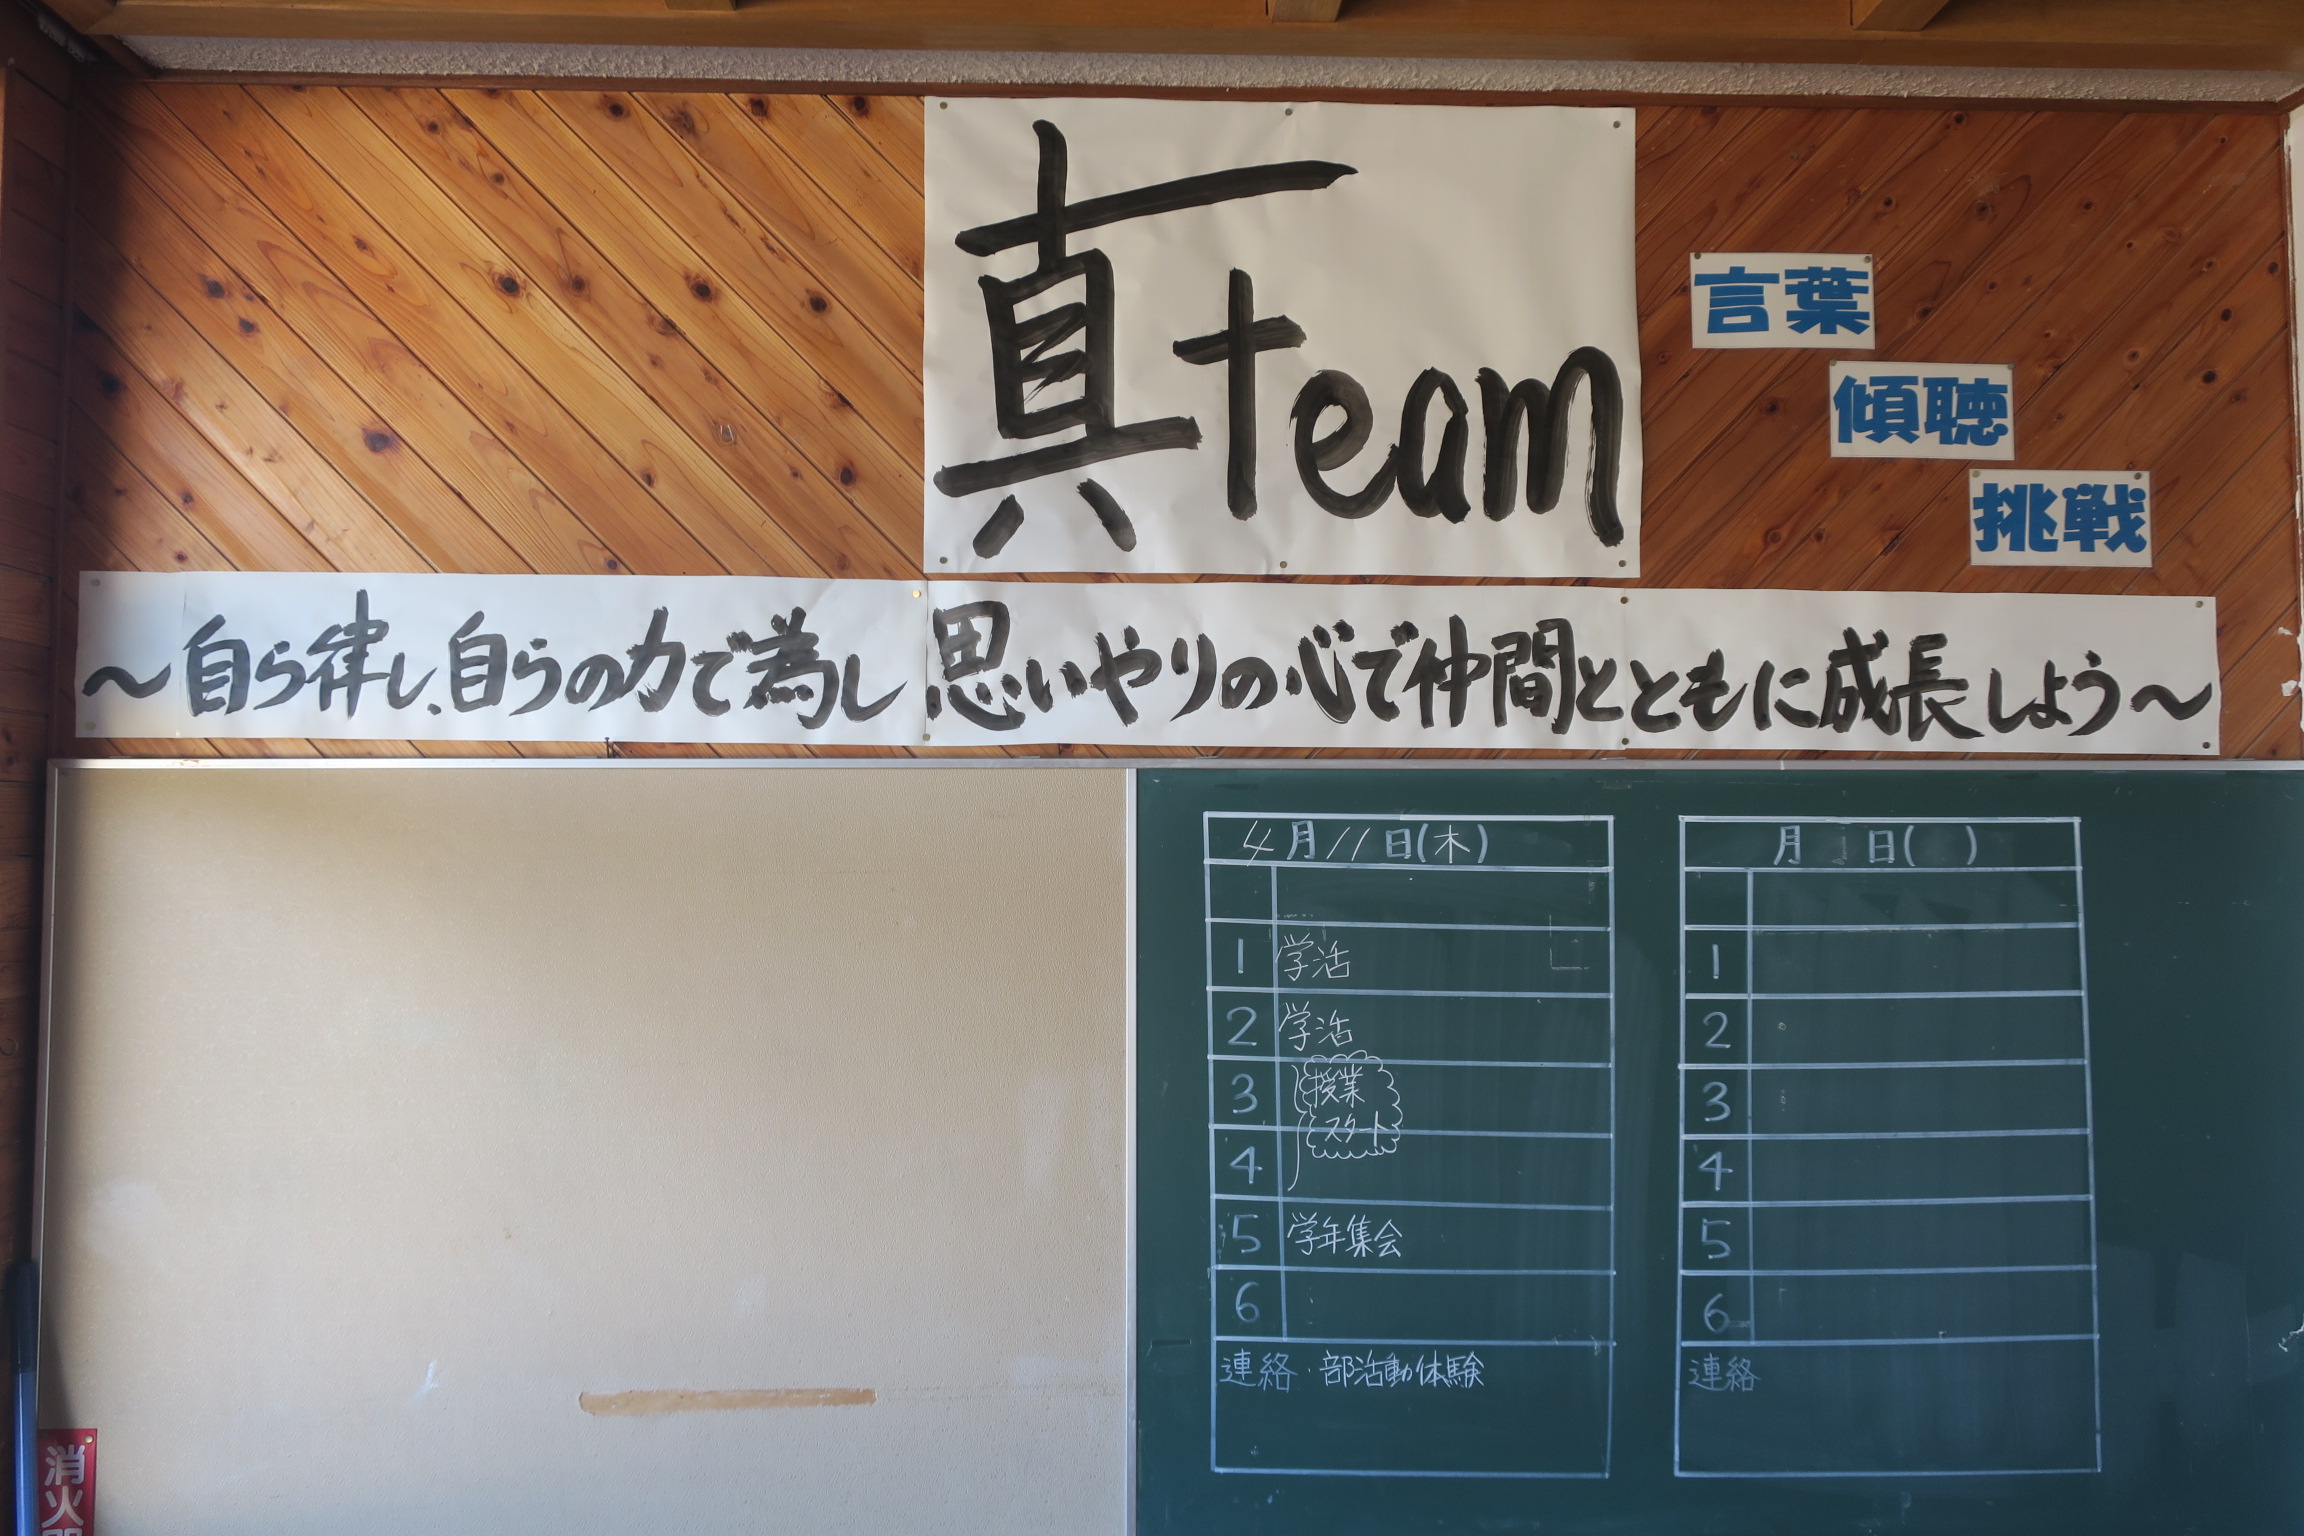 真team
言葉
傾聴
挑戦
～自ら律し、自らの力で為し 思いやりの心で仲間とともに成長しよう～
4月11日(木)
1 学活
2 学活
3 授業
スタート
4
5 学年集会
6
連絡・部活動体験
月 日( )
1
2
3
4
5
6
連絡
消火